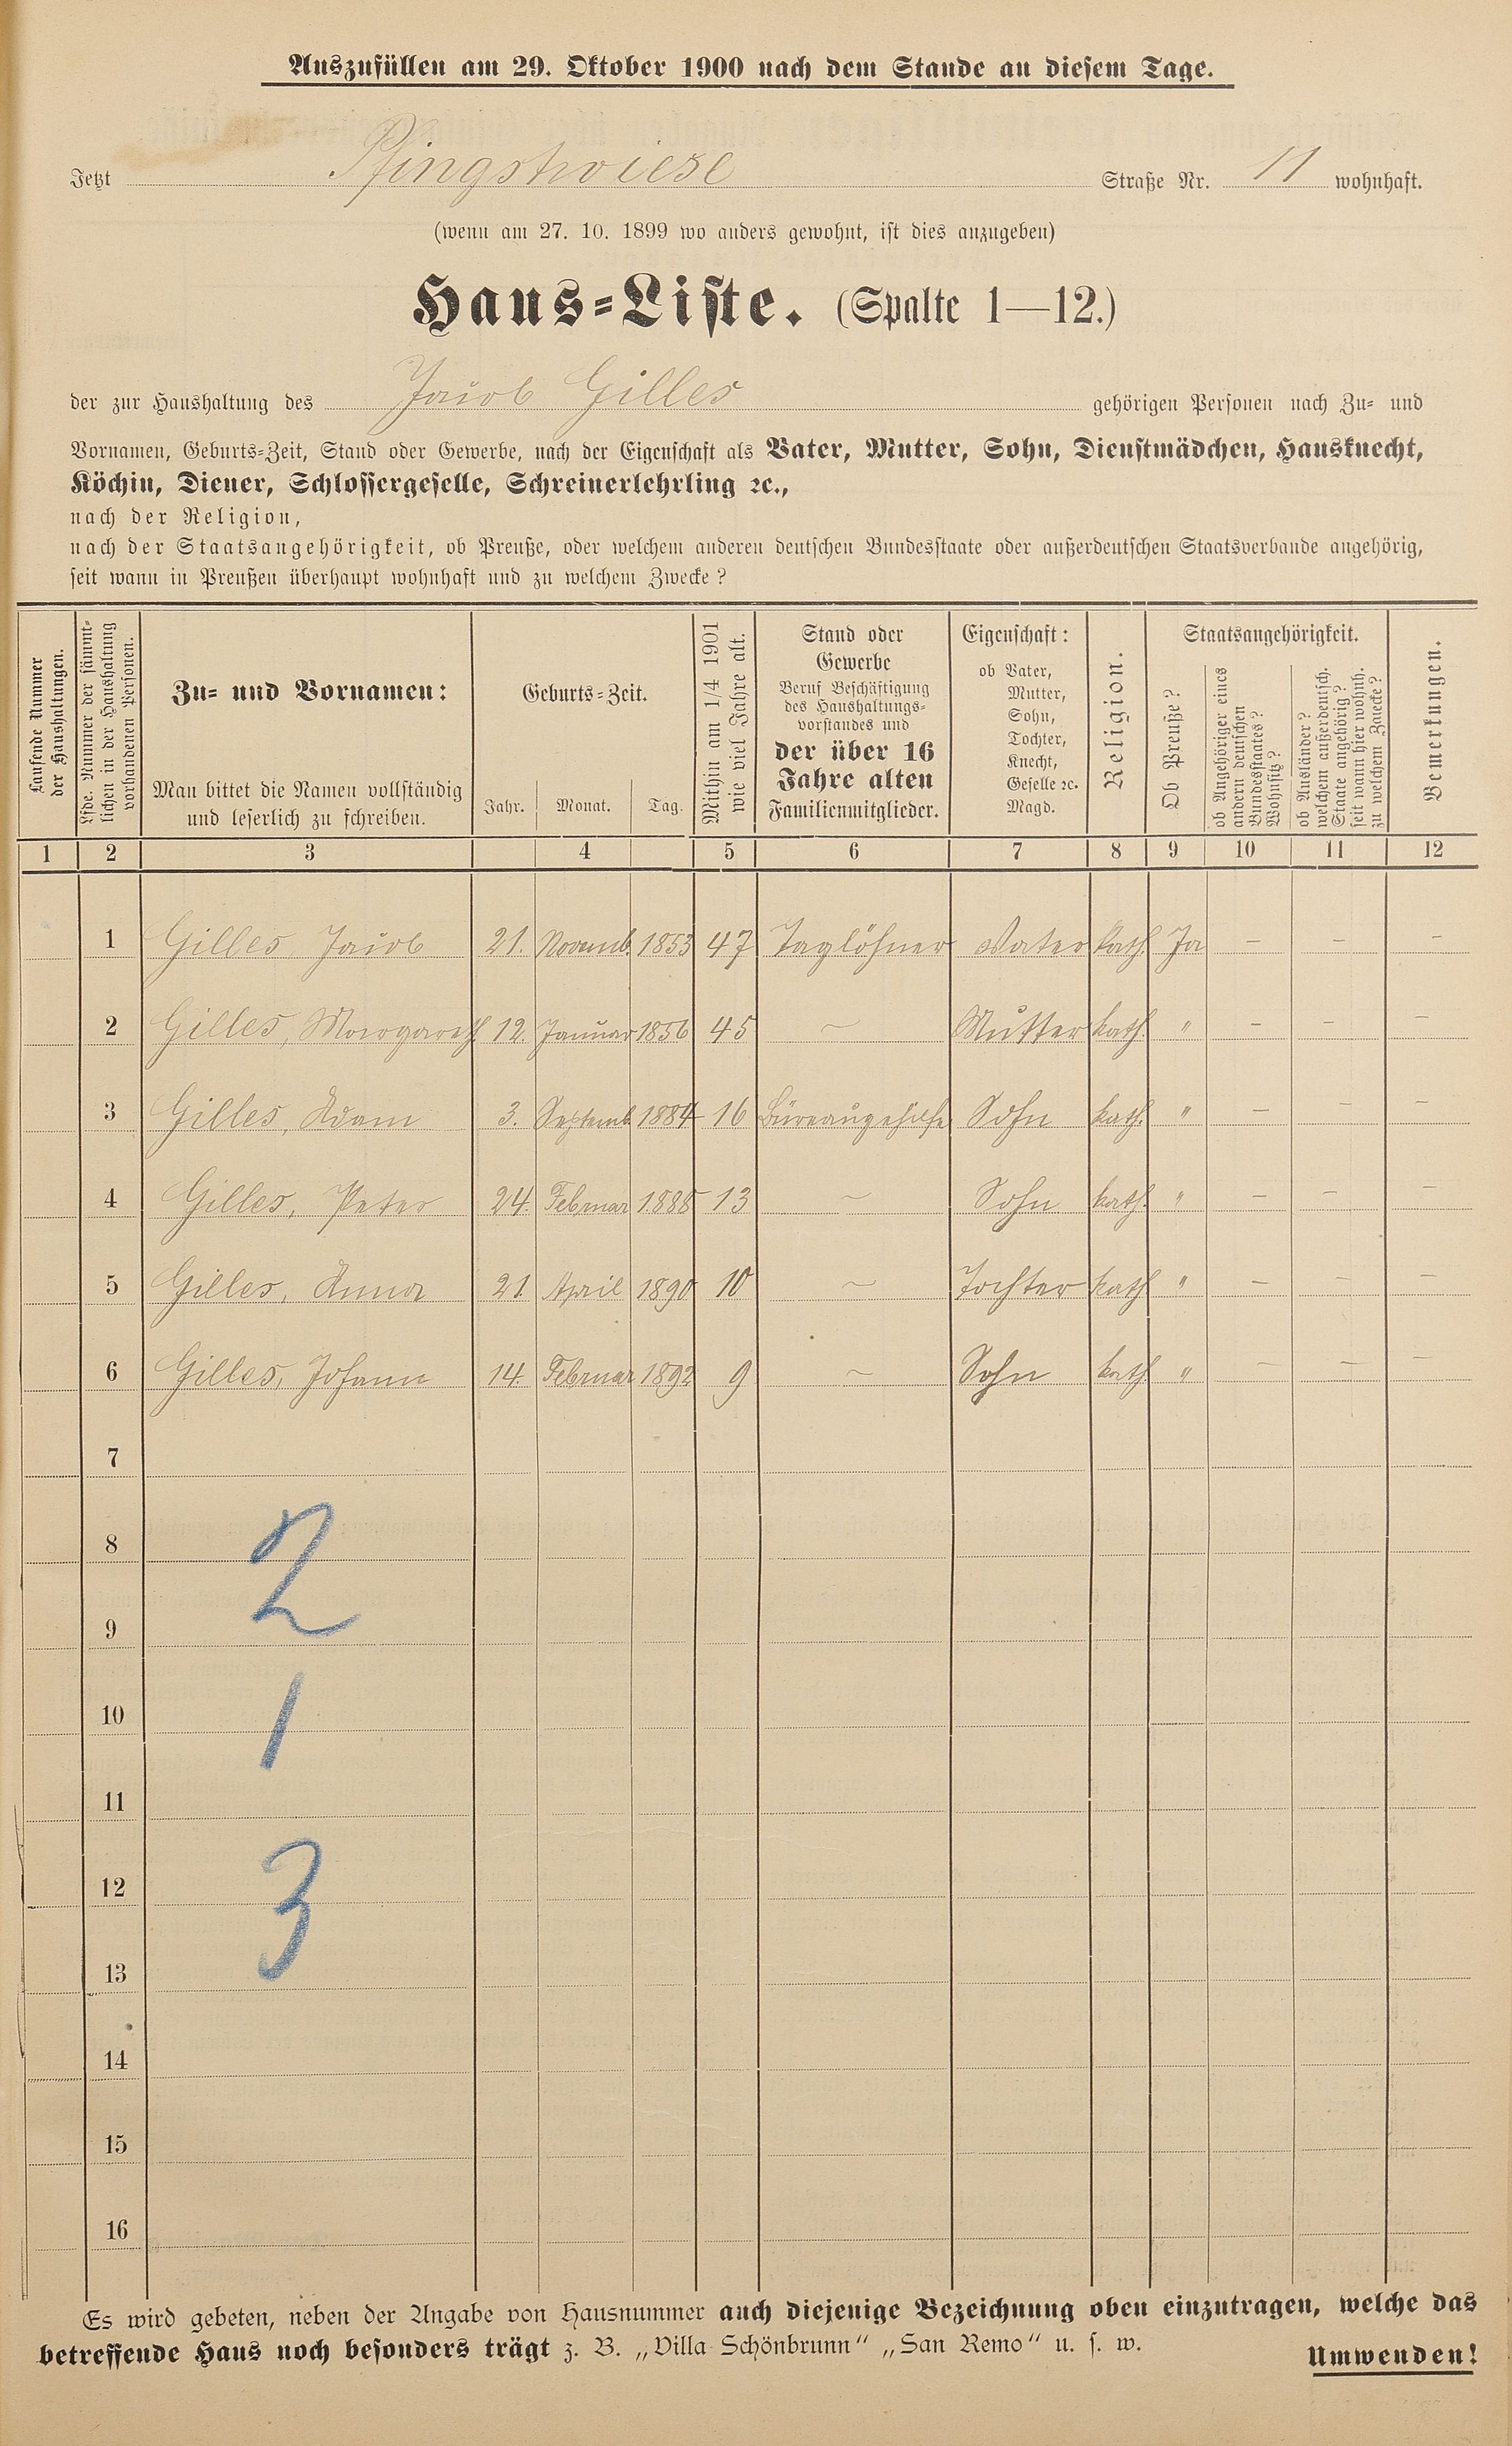 Auszufüllen am 29. Oktober 1900 nach dem Stande an diesem Tage.
Jetzt Pfingstwiese Straße Nr. 11 wohnhaft.
(wenn am 27. 10. 1899 wo anders gewohnt, ist dies anzugeben)
Haus-Liste. (Spalte 1—12.)
der zur Haushaltung des Jacob Gilles gehörigen Personen nach Zu- und
Vornamen, Geburts-Zeit, Stand oder Gewerbe, nach der Eigenschaft als Vater, Mutter, Sohn, Dienstmädchen, Hausknecht,
Köchin, Diener, Schlossergeselle, Schreinerlehrling ꝛc.,
nach der Religion,
nach der Staatsangehörigkeit, ob Preuße, oder welchem anderen deutschen Bundesstaate oder außerdeutschen Staatsverbande angehörig,
seit wann in Preußen überhaupt wohnhaft und zu welchem Zwecke?
Laufende Nummer
der Haushaltungen.
Lfde. Nummer der sämmt-
lichen in der Haushaltung
vorhandenen Personen.
Zu- und Vornamen:
Man bittet die Namen vollständig
und leserlich zu schreiben.
Geburts-Zeit.
Jahr. Monat. Tag.
Mithin am 1/4 1901
wie viel Jahre alt.
Stand oder
Gewerbe
Beruf Beschäftigung
des Haushaltungs-
vorstandes und
der über 16
Jahre alten
Familienmitglieder.
Eigenschaft:
ob Vater,
Mutter,
Sohn,
Tochter,
Knecht,
Geselle ꝛc.
Magd.
Religion.
Staatsangehörigkeit.
Ob Preuße?
ob Angehöriger eines
andern deutschen
Bundesstaates?
Wohnsitz?
ob Ausländer?
welchem außerdeutsch.
Staate angehörig?
seit wann hier wohnh.
zu welchem Zwecke?
Bemerkungen.
1 2 3 4 5 6 7 8 9 10 11 12
1 Gilles Jacob 21. Novemb. 1853 47 Taglöhner Vater kath. Ja — — —
2 Gilles, Margareth 12. Januar 1856 45 — Mutter kath. " — — —
3 Gilles, Adam 3. Septemb. 1884 16 Büreaugehilfe Sohn kath. " — — —
4 Gilles, Peter 24. Februar 1888 13 — Sohn kath. " — — —
5 Gilles, Anna 21. April 1890 10 — Tochter kath. " — — —
6 Gilles, Johann 14. Februar 1892 9 — Sohn kath. " — — —
7
8
2
9
10
1
11
12
3
13
14
15
16
Es wird gebeten, neben der Angabe von Hausnummer auch diejenige Bezeichnung oben einzutragen, welche das
betreffende Haus noch besonders trägt z. B. „Villa Schönbrunn“ „San Remo“ u. s. w.
Umwenden!